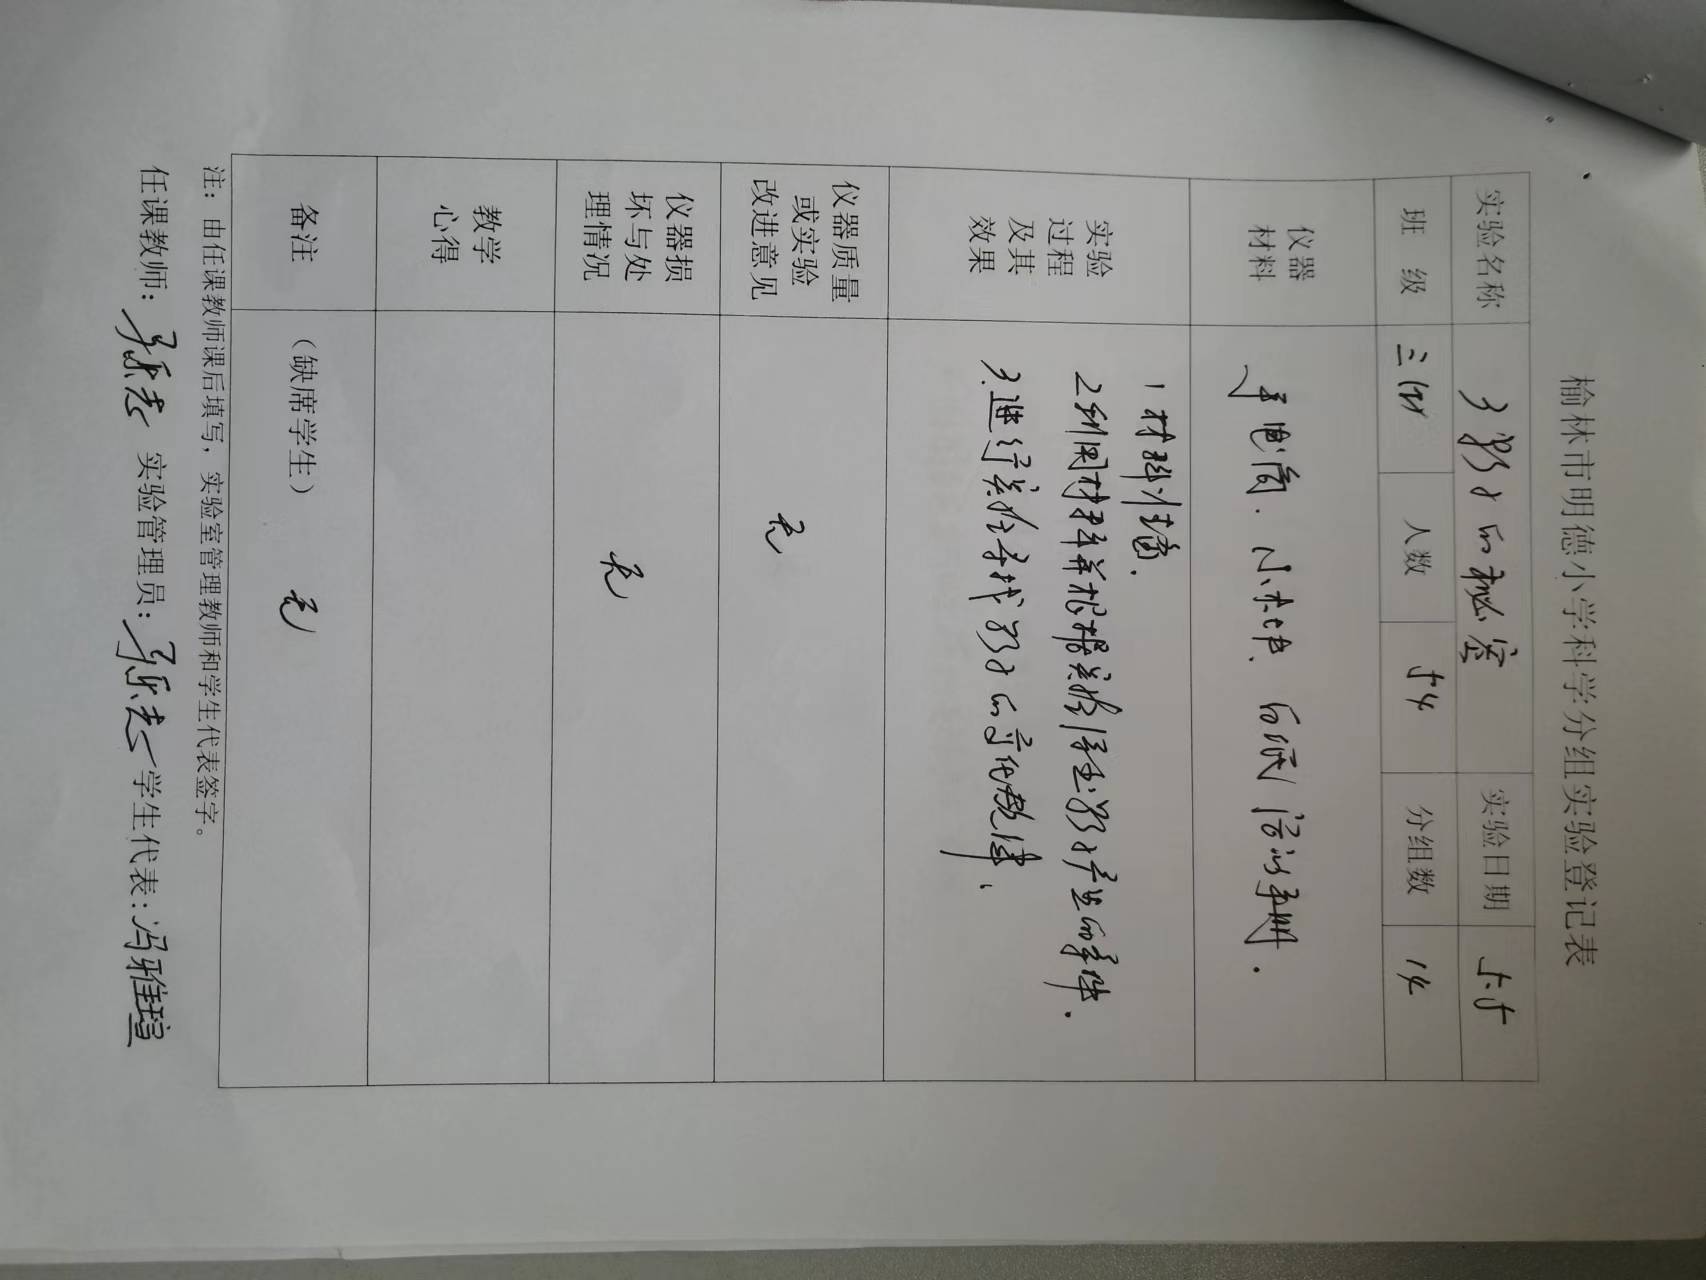 榆林市明德小学科学分组实验登记表
实验名称 3影子的秘密 实验日期 5.5
班 级 三 人数 54 分组数 14
仪器
材料
手电筒、小木块、白纸、活动手册.
实验
过程
及其
效果
1材料准备.
2利用材料并根据实验信息影子产生的条件.
3.进行实验寻找影子的变化规律.
仪器质量
或实验
改进意见
无
仪器损
坏与处
理情况
无
教学
心得
备注
(缺席学生)
无
注: 由任课教师课后填写, 实验室管理教师和学生代表签字。
任课教师: 实验管理员: 学生代表: 冯雅瑄